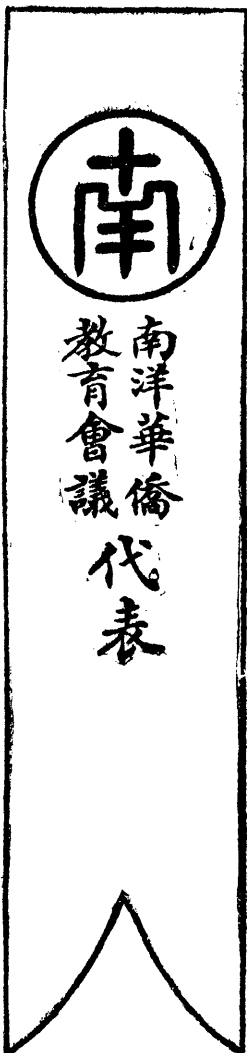 南
南洋華僑
教育會議
代表